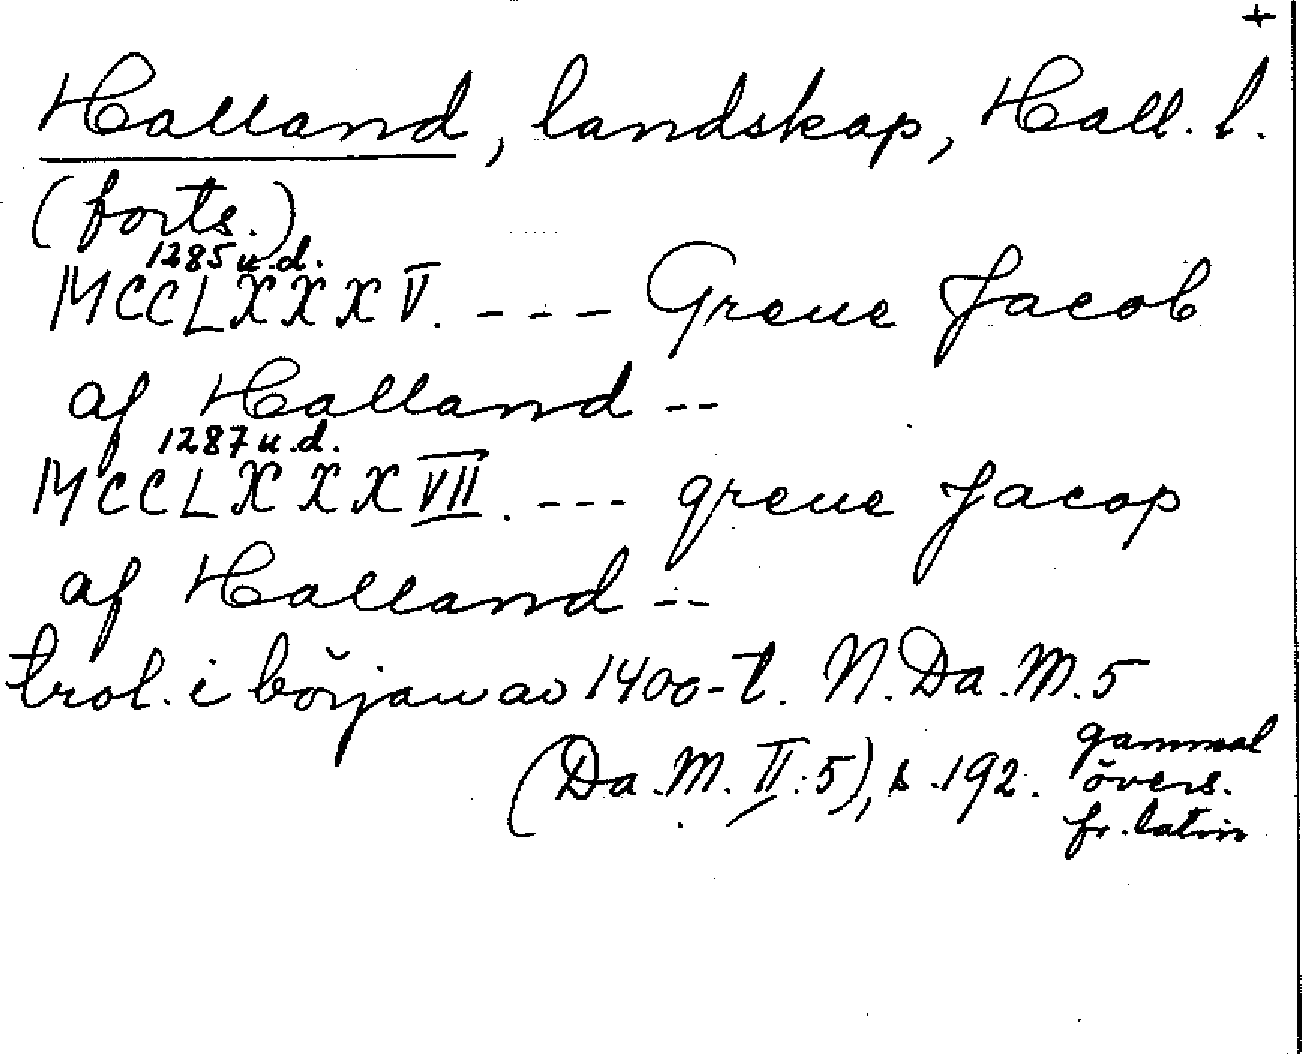 +
Halland, landskap, Hall. l.
(forts.)
1285 u.d.
MCCLXXXV. --- Greue Jacob
af Halland --
1287 u.d.
MCCLXXXVII. --- greue Jacop
af Halland --
trol. i början av 1400-t. N. Da. M. 5
(Da. M. II: 5), s. 192. gammal
övers.
fr. latin